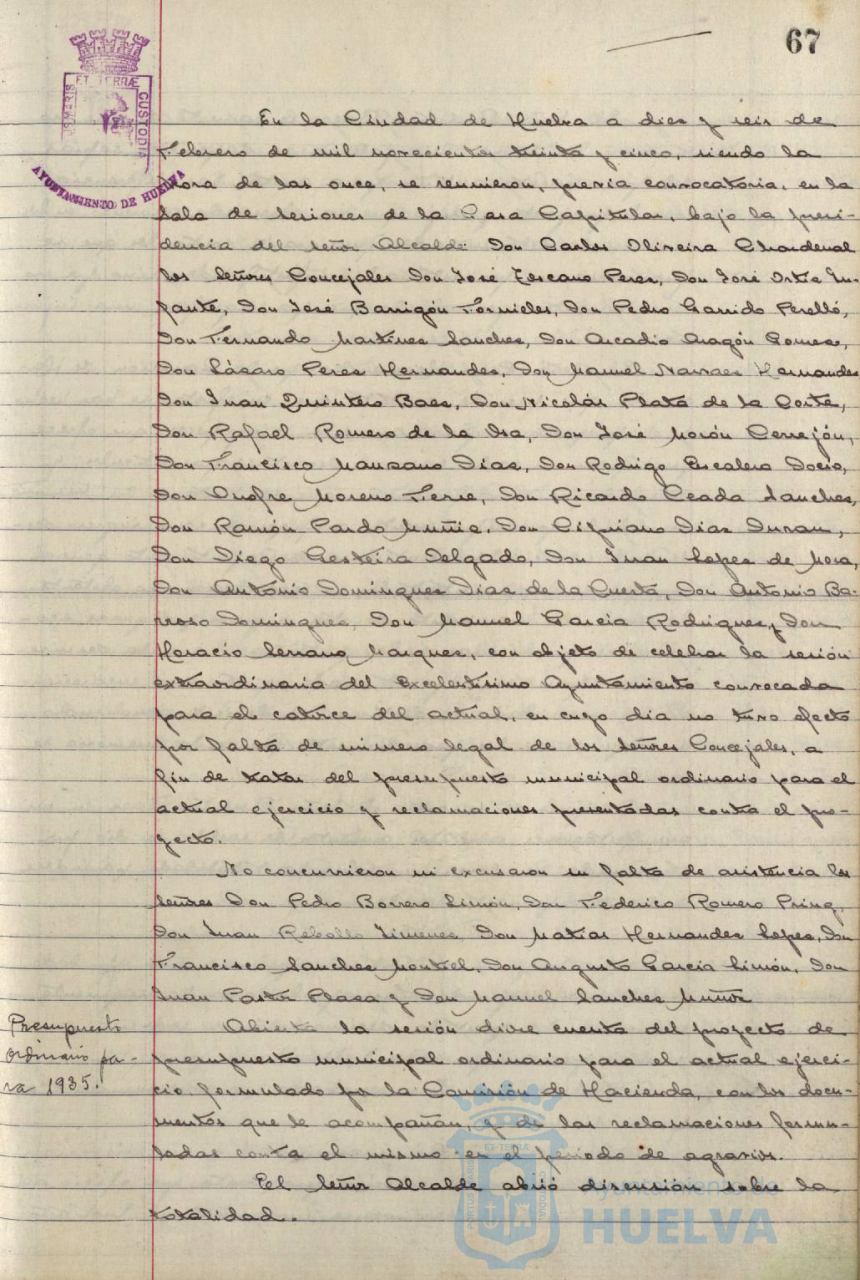 67
PORTUS MARIS ET TERRÆ CUSTODIA
AYUNTAMIENTO DE HUELVA
En la Ciudad de Huelva a diez y seis de
Febrero de mil novecientos treinta y cinco, siendo la
hora de las once, se reunieron, previa convocatoria, en la
Sala de Sesiones de la Casa Capitular, bajo la presi-
dencia del Señor Alcalde Don Carlos Oliveira Chardenal
los Señores Concejales Don José Toscano Perez, Don José Ortiz In-
fante, Don José Barrigón Fornieles, Don Pedro Garrido Perelló,
Don Fernando Martinez Sanchez, Don Arcadio Aragón Gomez,
Don Lázaro Perez Hernandez, Don Manuel Narvaez Hernandez
Don Juan Quintero Baez, Don Nicolás Plata de la Corte,
Don Rafael Romero de la Osa, Don José Morón Cerrejón,
Don Francisco Manzano Diaz, Don Rodrigo Escalera Docio,
Don Onofre Moreno Ferre, Don Ricardo Ceada Sanchez,
Don Ramón Pardo Muñiz, Don Cipriano Diaz Duran,
Don Diego Gesteira Delgado, Don Juan Lopez de Mora,
Don António Dominguez Diaz de la Cuesta, Don Antonio Ba-
rroso Dominguez, Don Manuel Garcia Rodriguez, y Don
Horacio Serrano Marquez, con objeto de celebrar la sesión
extraordinaria del Excelentísimo Ayuntamiento convocada
para el catorce del actual, en cuyo dia no tuvo efecto
por falta de número legal de los Señores Concejales, a
fin de tratar del presupuesto municipal ordinario para el
actual ejercicio y reclamaciones presentadas contra el pro-
yecto.
No concurrieron ni excusaron su falta de asistencia los
Señores Don Pedro Borrero Limón, Don Federico Romero Princ,
Don Juan Rebollo Jimenez, Don Matias Hernandez Lopez, Don
Francisco Sanchez Montiel, Don Augusto Garcia Limón, Don
Juan Pastor Plaza y Don Manuel Sanchez Muñoz
Presupuesto
ordinario pa-
ra 1935.
Abierta la sesión dióse cuenta del proyecto de
presupuesto municipal ordinario para el actual ejerci-
cio, formulado por la Comisión de Hacienda, con los docu-
mentos que le acompañan, y de las reclamaciones formu-
ladas contra el mismo en el período de agravios.
El Señor Alcalde abrió discusión sobre la
totalidad.
Ayuntamiento de
HUELVA